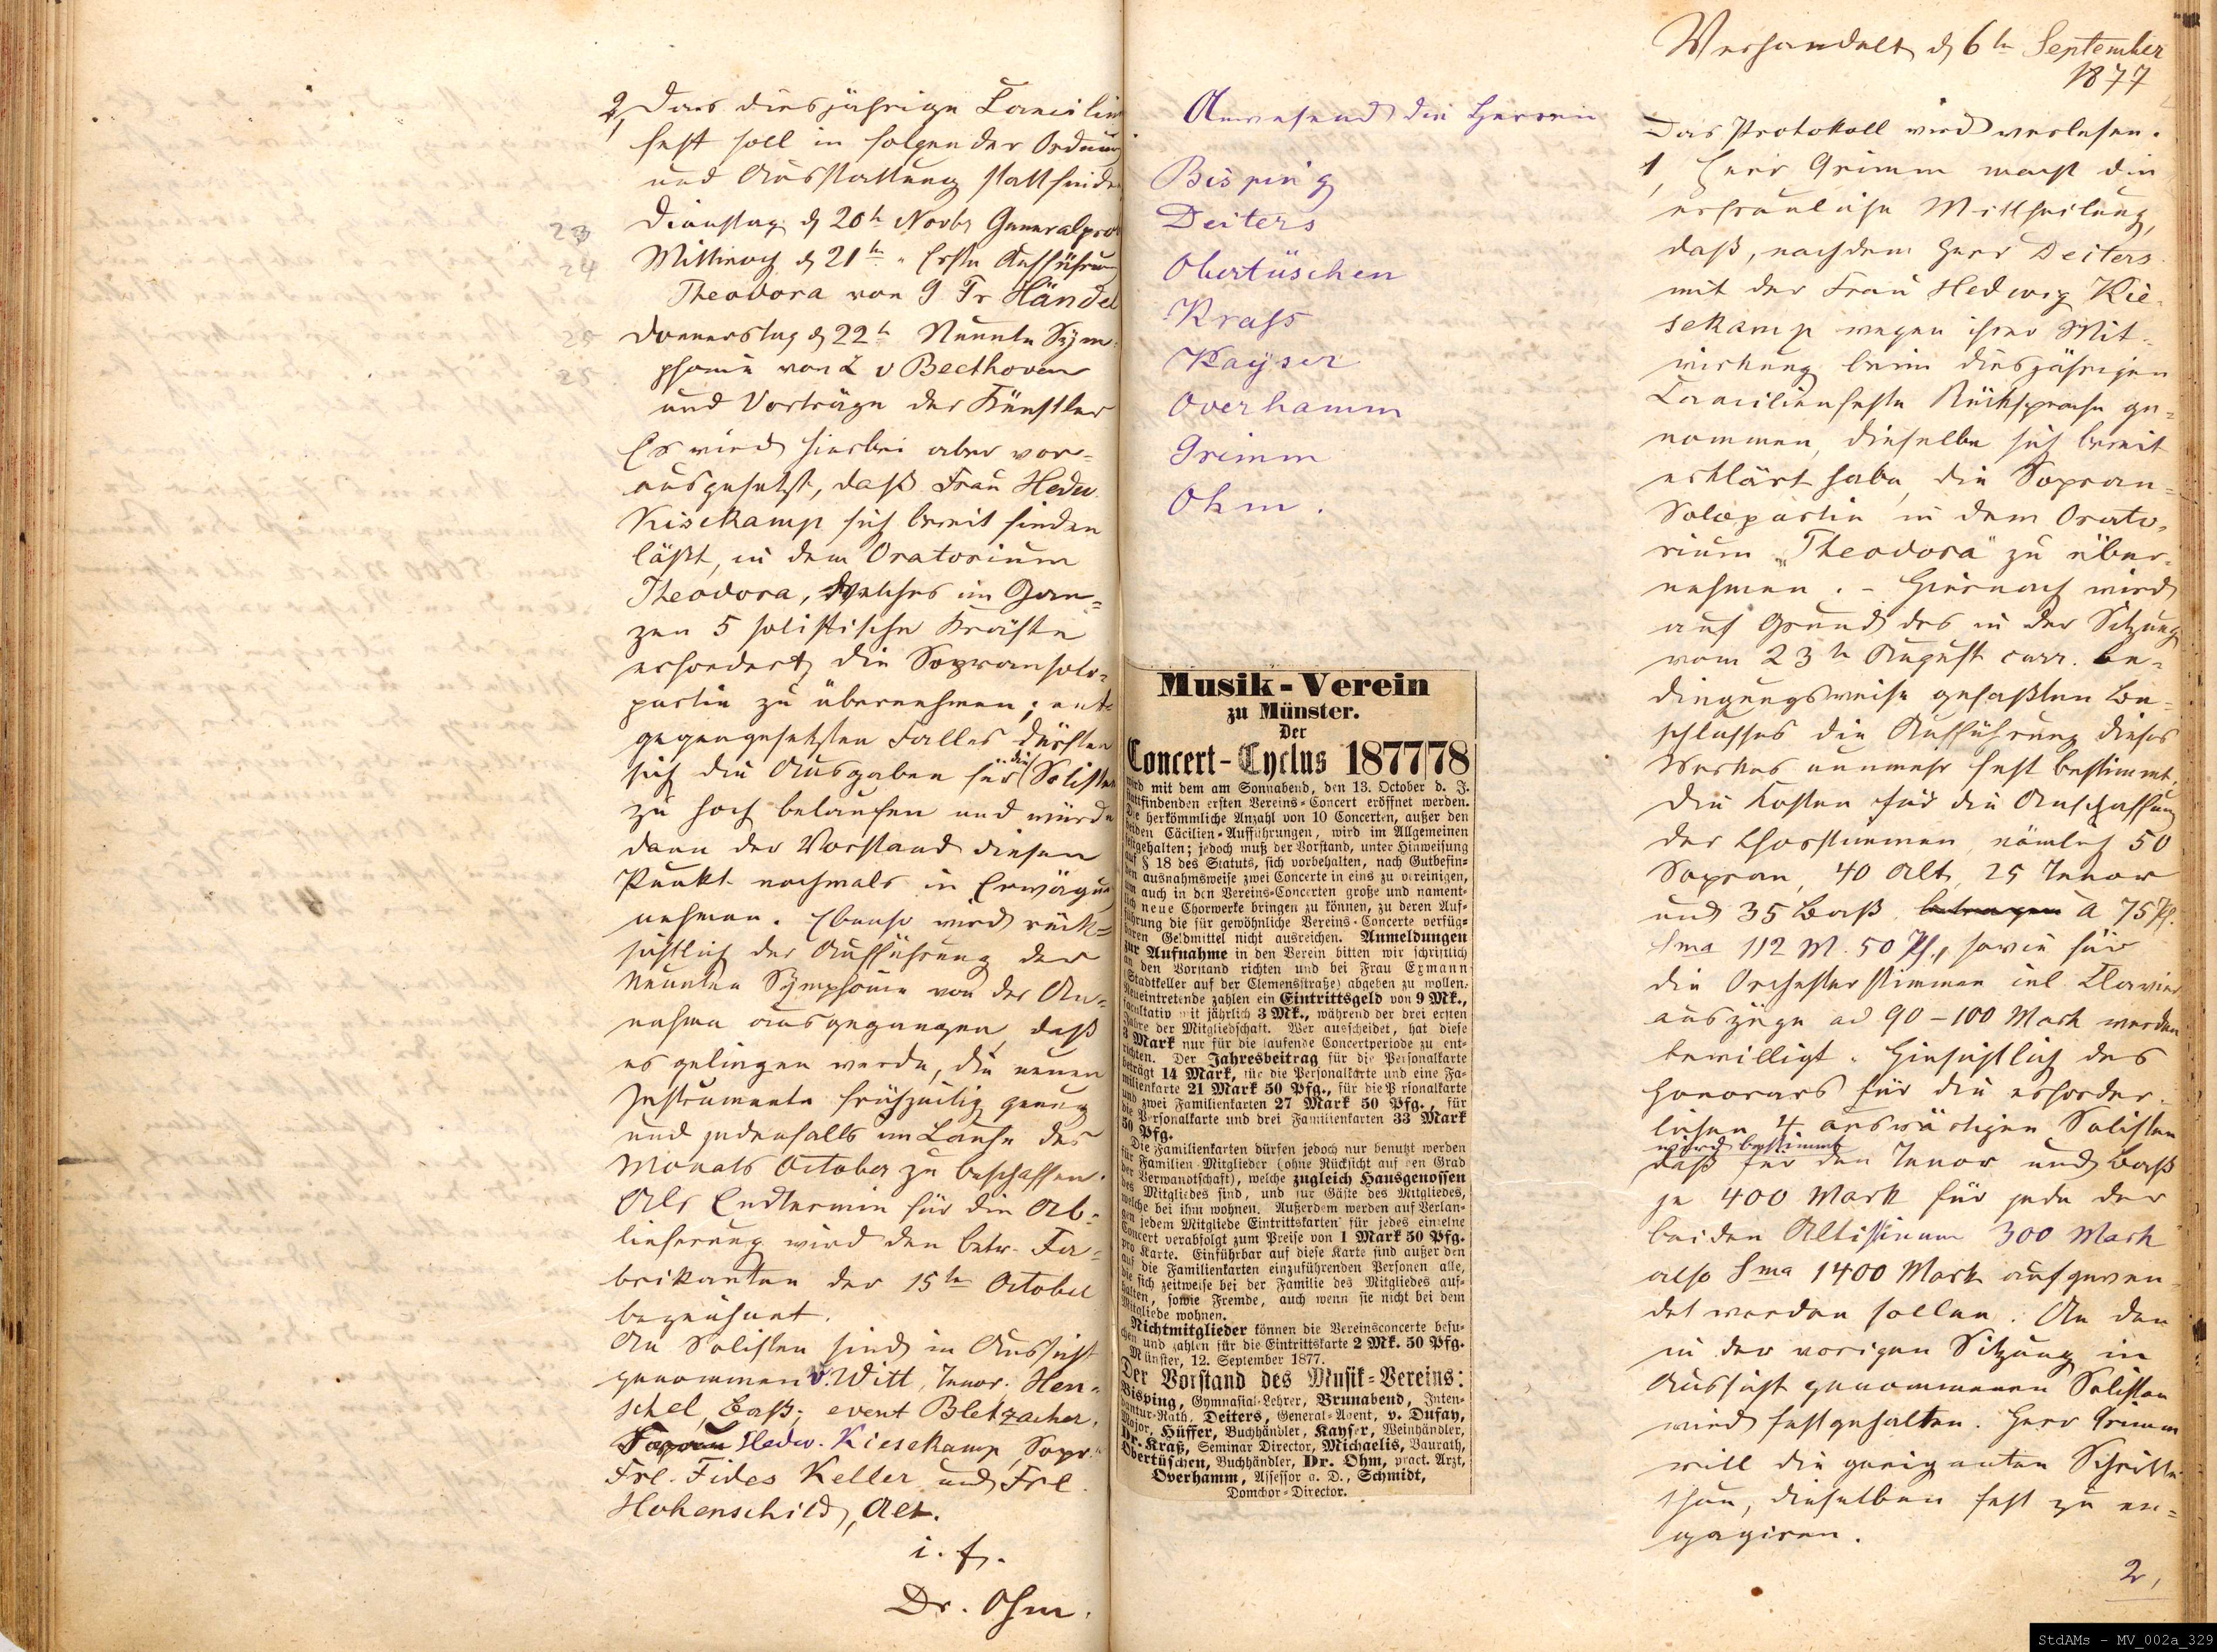 2, Das diesjährige Caecilien
fest soll in folgender Ordnung
und Ausstattung stattfinden
23 Dienstag d 20t Novbr Generalprobe
24 Mittwoch d 21t " Erste Aufführung
Theodora von G Fr Händel
25 Donnerstag d 22t Neunte Sym-
25 phonie von L v Beethoven
und Vorträge der Künstler
Es wird hierbei aber vor=
ausgesetzt, daß Frau Hedw.
Kisekamp sich bereit finden
läßt, in dem Oratorium
Theodora, Welches im Gan=
zen 5 solistische Kräfte
erfordert, die Sopransolo=
partie zu übernehmen; ent=
gegengesetzten Falles dürften
sich die Ausgaben für die Solisten
zu hoch belaufen und würde
dann der Vorstand diesen
Punkt nochmals in Erwägung
nehmen. Ebenso wird rück=
sichtlich der Aufführung der
Neunten Symphonie von der An=
nahme ausgegangen, daß
es gelingen werde, die neuen
Instrumente frühzeitig genug
und jedenfalls im Laufe des
Monats October zu beschaffen.
Als Endtermin für die Ab=
lieferung wird den betr. Fa=
brikanten der 15te October
bezeichnet.
An Solisten sind in Aussicht
genommen v. Witt, Tenor. Hen=
schel, Baß; event Bletzacher,
Sopran Hedw. Kiesekamp, Sopr.
Frl. Fides Keller und Frl.
Hohenschild, Alt.
i. f.
Dr. Ohm.
Anwesend die Herren
Bisping
Deiters
Obertüschen
Krass
Kayser
Overhamm
Grimm
Ohm.
Musik-Verein
zu Münster.
Der
Concert-Cyclus 1877/78
wird mit dem am Sonnabend, den 13. October d. J.
stattfindenden ersten Vereins-Concert eröffnet werden.
Die herkömmliche Anzahl von 10 Concerten, außer den
beiden Cäcilien-Aufführungen, wird im Allgemeinen
festgehalten; jedoch muß der Vorstand, unter Hinweisung
auf § 18 des Statuts, sich vorbehalten, nach Gutbefin-
den ausnahmsweise zwei Concerte in eins zu vereinigen,
um auch in den Vereins-Concerten große und nament-
lich neue Chorwerke bringen zu können, zu deren Auf-
führung die für gewöhnliche Vereins-Concerte verfüg-
baren Geldmittel nicht ausreichen. Anmeldungen
zur Aufnahme in den Verein bitten wir schriftlich
an den Vorstand richten und bei Frau Exmann
(Stadtkeller auf der Clemensstraße) abgeben zu wollen.
Neueintretende zahlen ein Eintrittsgeld von 9 Mk.,
facultativ mit jährlich 3 Mk., während der drei ersten
Jahre der Mitgliedschaft. Wer ausscheidet, hat diese
3 Mark nur für die laufende Concertperiode zu ent-
richten. Der Jahresbeitrag für die Personalkarte
beträgt 14 Mark, für die Personalkarte und eine Fa-
milienkarte 21 Mark 50 Pfg., für die Personalkarte
und zwei Familienkarten 27 Mark 50 Pfg., für
die Personalkarte und drei Familienkarten 33 Mark
50 Pfg.
Die Familienkarten dürfen jedoch nur benutzt werden
für Familien-Mitglieder (ohne Rücksicht auf den Grad
der Verwandtschaft), welche zugleich Hausgenossen
des Mitgliedes sind, und für Gäste des Mitgliedes,
welche bei ihm wohnen. Außerdem werden auf Verlan-
gen jedem Mitgliede Eintrittskarten für jedes einzelne
Concert verabfolgt zum Preise von 1 Mark 50 Pfg.
pro Karte. Einführbar auf diese Karte sind außer den
auf die Familienkarten einzuführenden Personen alle,
die sich zeitweise bei der Familie des Mitgliedes auf-
halten, sowie Fremde, auch wenn sie nicht bei dem
Mitgliede wohnen.
Nichtmitglieder können die Vereinsconcerte besu-
chen und zahlen für die Eintrittskarte 2 Mk. 50 Pfg.
Münster, 12. September 1877.
Der Vorstand des Musik-Vereins:
Bisping, Gymnasial-Lehrer, Brunabend, Inten-
dantur-Rath, Deiters, General-Agent, v. Dufay,
Major, Hüffer, Buchhändler, Kayser, Weinhändler,
Dr. Kraß, Seminar Director, Michaelis, Baurath,
Obertüschen, Buchhändler, Dr. Ohm, pract. Arzt,
Overhamm, Assessor a. D., Schmidt,
Domchor-Director.
Verhandelt, d 6te September
1877
Das Protokoll wird verlesen.
1, Herr Grimm macht die
erfreuliche Mittheilung,
daß, nachdem Herr Deiters
mit der Frau Hedwig Kie-
sekamp wegen ihrer Mit-
wirkung beim diesjährigen
Caecilienfeste Rücksprache ge=
nommen, dieselbe sich bereit
erklärt habe, die Sopran=
Solopartie in dem Orato=
rium „Theodora" zu über=
nehmen. - Hiernach wird
auf Grund des in der Sitzung
vom 23te August curr. be=
dingungsweise gefaßten Be=
schlusses die Aufführung dieses
Werkes nunmehr fest bestimmt.
Die Kosten für die Anschaffung
der Chorstimmen, nämlich 50
Sopran, 40 Alt, 25 Tenor
und 35 Baß betragen a 75 Pf.
Sma 112 M. 50 Pf., sowie für
die Orchesterstimmen incl. Clavier
auszüge ad 90-100 Mark werden
bewilligt. Hinsichtlich des
Honorars für die erforder-
lichen 4 auswärtigen Solisten
wird bestimmt
daß für den Tenor und Baß
je 400 Mark für jede der
beiden Altistinnen 300 Mark
also Sma 1400 Mark aufgewen-
det werden sollen. An den
in der vorigen Sitzung in
Aussicht genommenen Solisten
wird festgehalten. Herr Grimm
will die geeigneten Schritte
thun, dieselben fest zu en=
gagiren.
2,
StdAMs - MV_002a_329